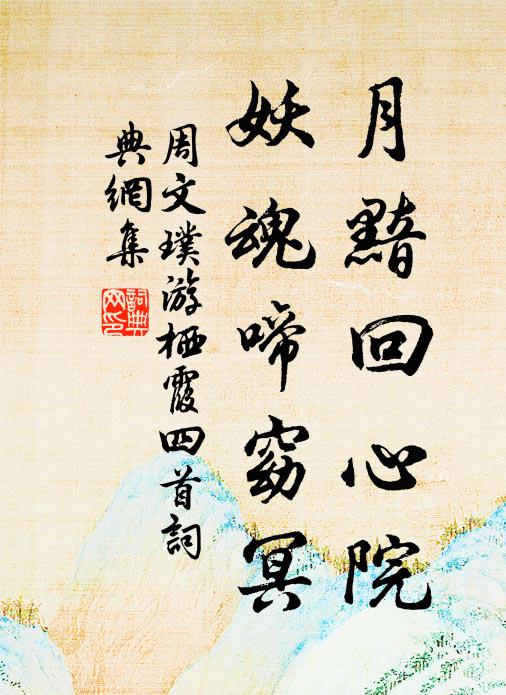 月黯回心院
妖魂啼窈冥
周文璞游栖霞四首詞
典網集
詞典
网印